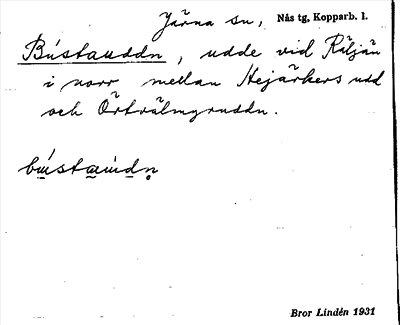 Järna sn, Nås tg, Kopparb. l.
Bústauddn, udde vid Räljän
i norr mellan Hejärkers udd
och Örträlmyruddn.
Bror Lindén 1931